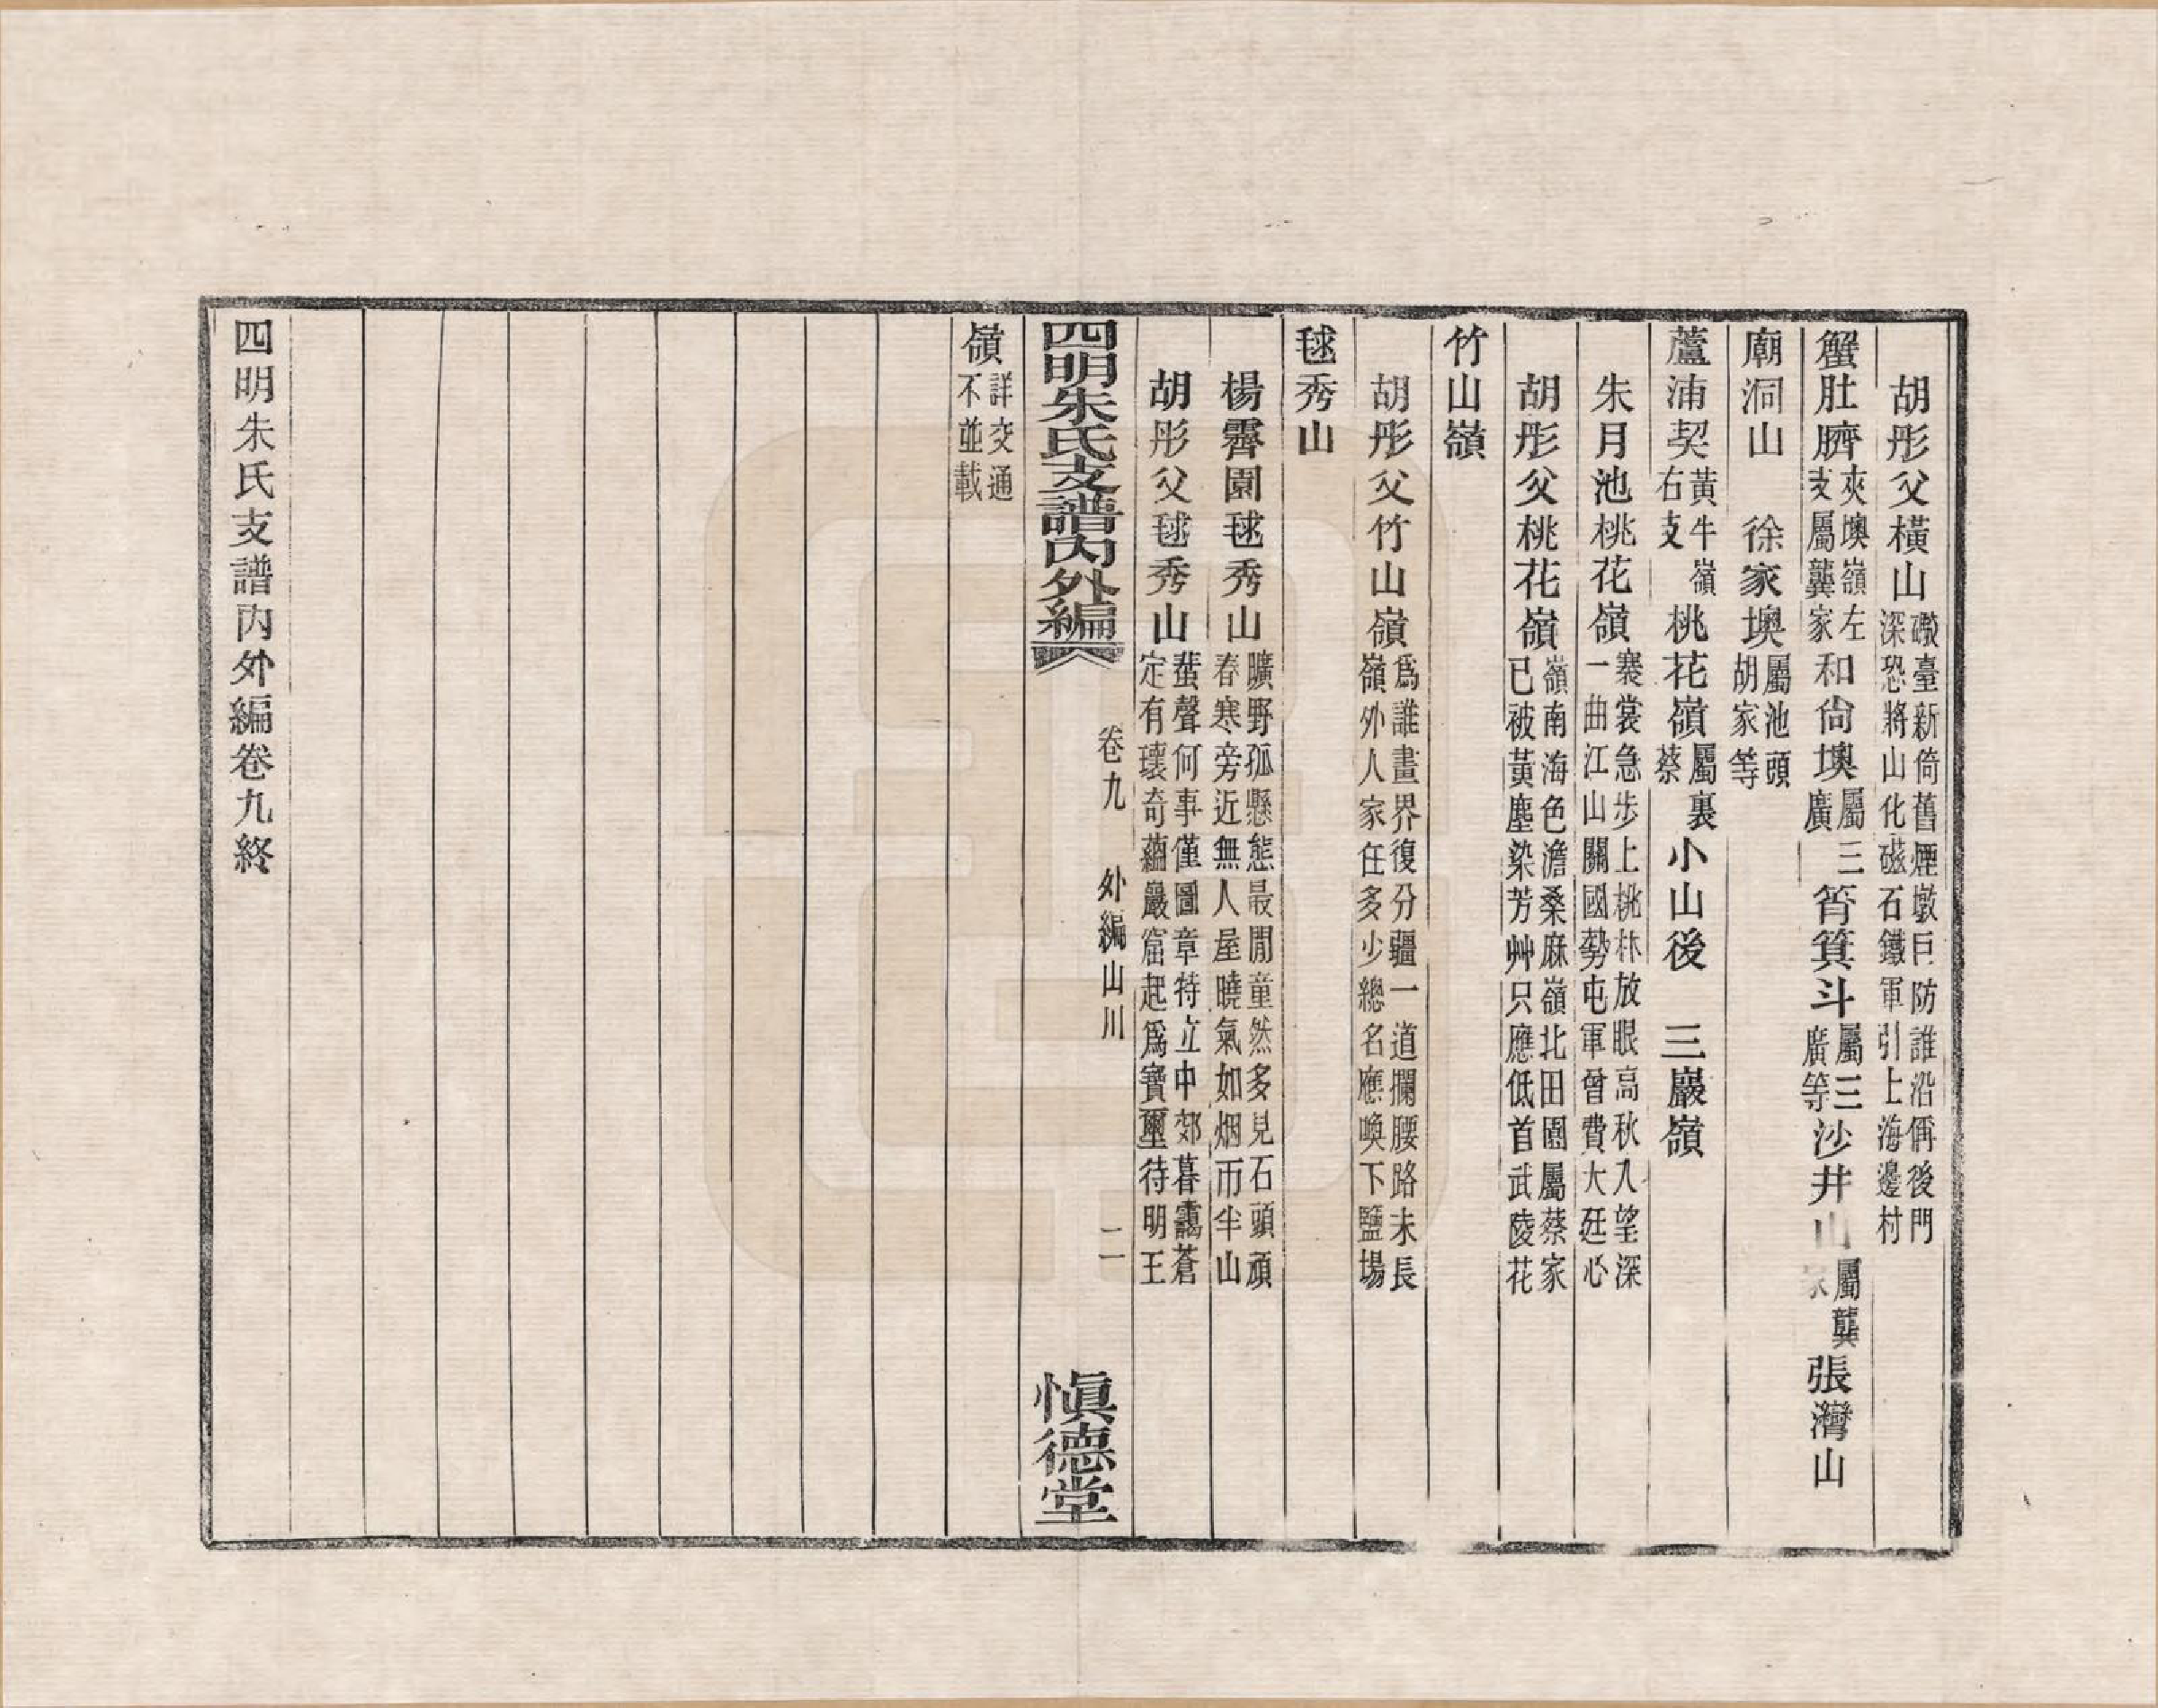 胡彤父橫山礮臺新倚舊煙墩巨防誰沿偁後門深恐將山化磁石鐵軍引上海邊村
蟹肚臍夾墺嶺左支屬龔家和尙墺屬三廣筲箕斗屬三廣等沙井山屬龔家張灣山
廟洞山　徐家墺屬池頭胡家等
蘆浦契黃牛嶺右支桃花嶺屬裏蔡小山後　三巖嶺
朱月池桃花嶺褰裳急步上桃林放眼高秋入望深一曲江山關國勢屯軍曾費大廷心
胡彤父桃花嶺嶺南海色澹桑麻嶺北田園屬蔡家已被黃塵染芳艸只應低首武陵花
竹山嶺
胡彤父竹山嶺爲誰畫界復分疆一道攔腰路未長嶺外人家住多少總名應喚下鹽場
毬秀山
楊霽園毬秀山曠野孤懸態最閒童然多見石頭頑春寒旁近無人屋曉氣如烟帀半山
胡彤父毬秀山蜚聲何事僅圖章特立中郊暮靄蒼定有瓌奇蘊巖窟起爲寶璽待明王
四明朱氏支譜內外編　卷九　外編山川　二　愼德堂
嶺詳交通不並載
四明朱氏支譜內外編卷九終